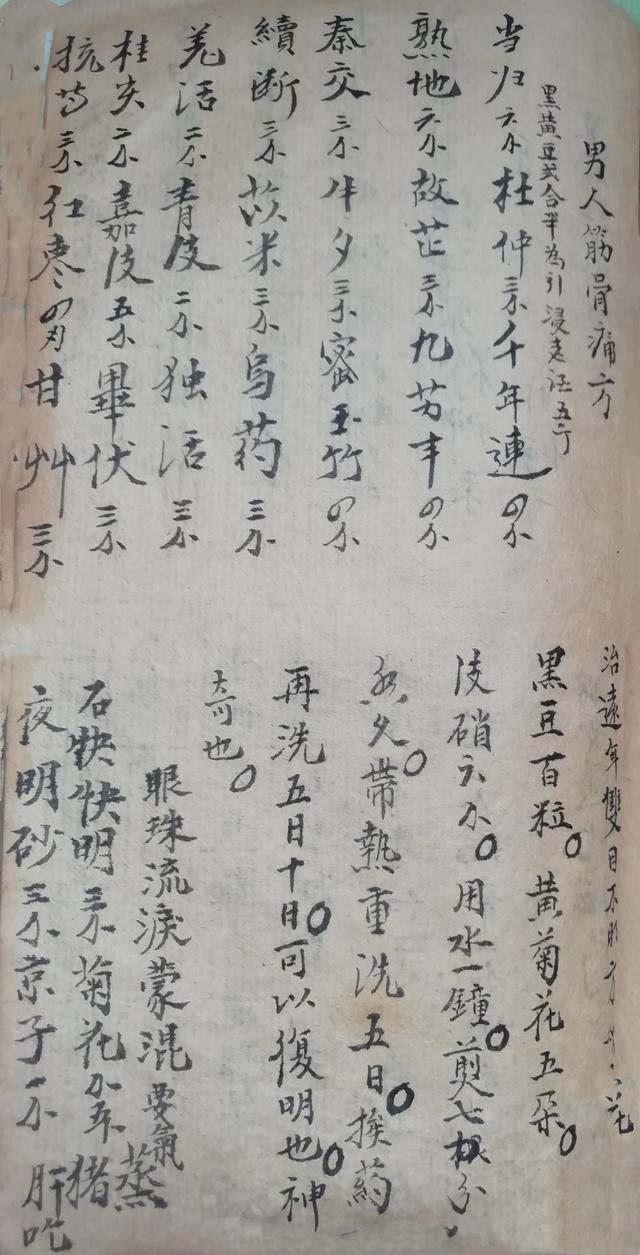 男人筋骨痛方
黑黄豆弍合半為引浸走酒五斤
当归六分杜仲三分千年連四分
熟地六分故芷三分九芳丰四分
秦交三分牛夕三分蜜玉竹四分
續断三分苡米三分烏葯三分
羌活二分青皮二分独活三分
桂夾二分嘉皮五分畢伏三分
三分红枣四刃甘艸三分
治遠年雙目不明方
黑豆百粒。黄菊花五朵。
硝六分。用水一鐘。煎七
久。帶熱重洗五日。挨葯
再洗五日十日。可以復明也。神
奇也。
眼珠流淚蒙混要氣蒸
石快明三分菊花猪
夜明砂三分京子一分肝吃